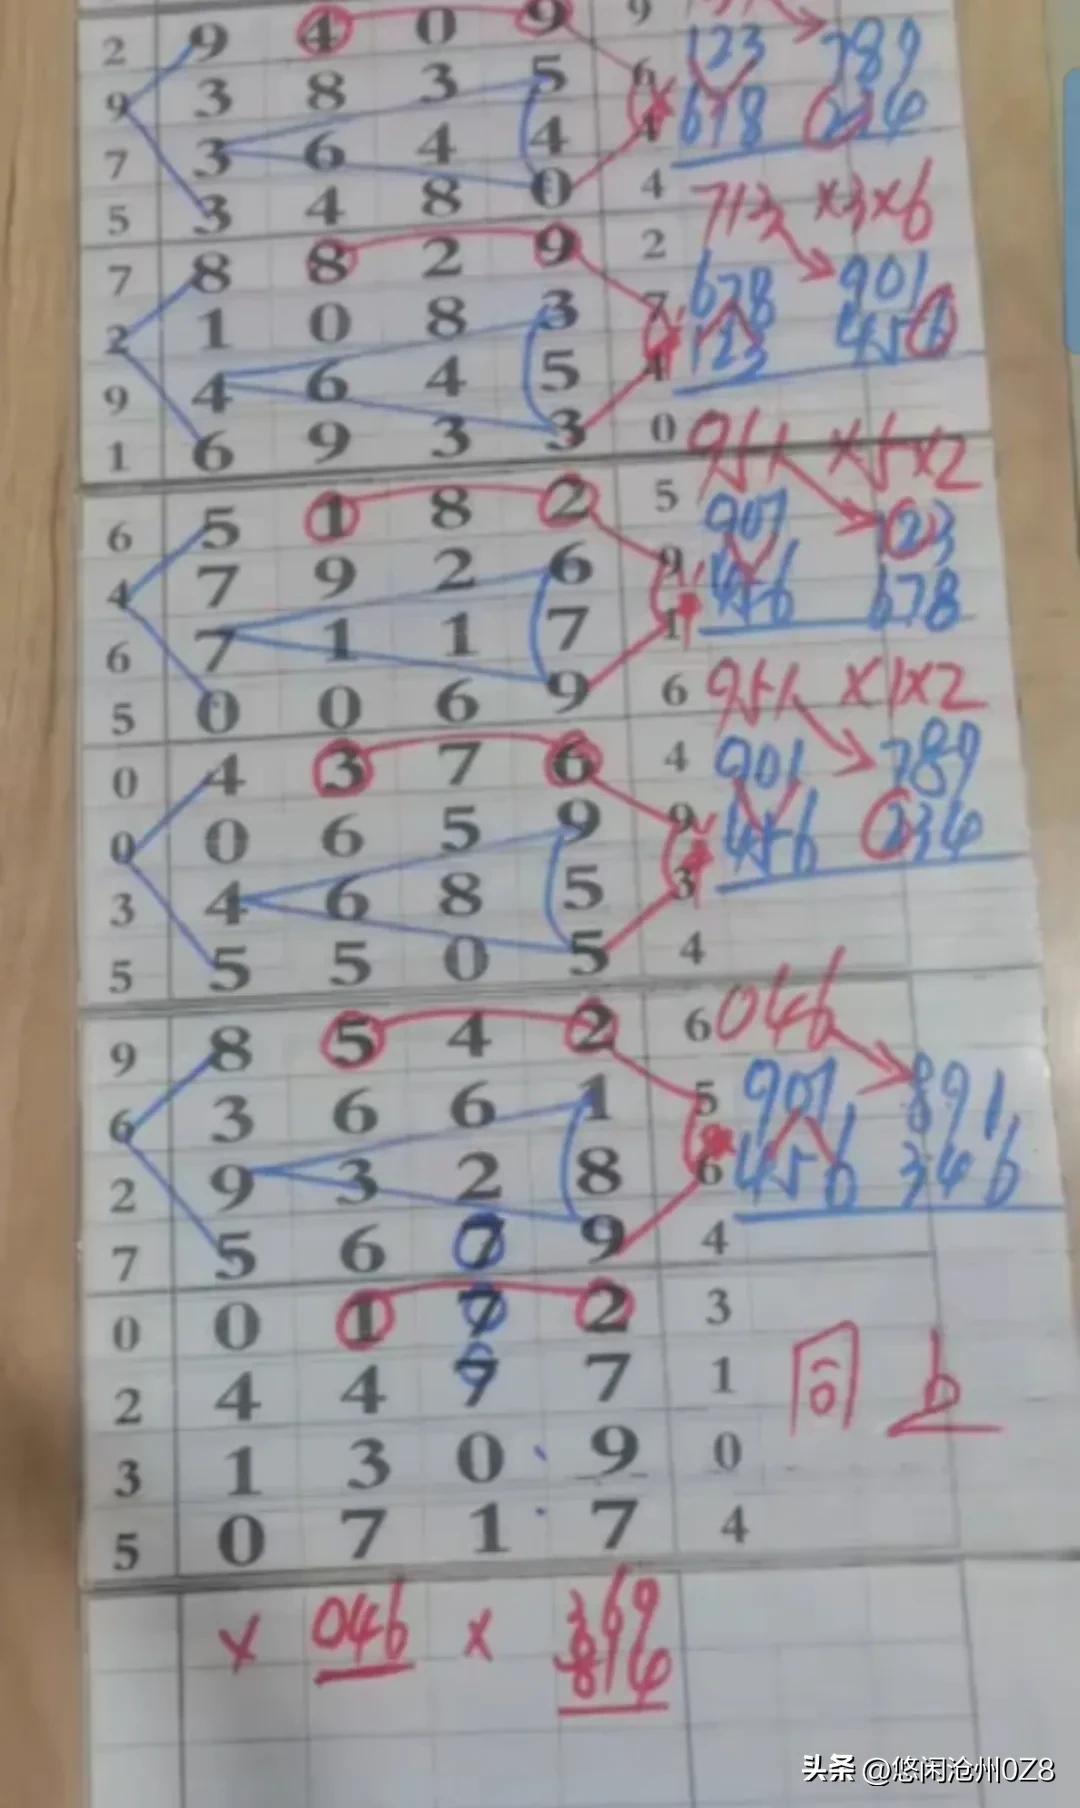 2 9 4 0 9 9
9 3 8 3 5 6 123 789
7 3 6 4 4 4 678 234
5 3 4 8 0 4 713 ×3×6
7 8 8 2 9 2
2 1 0 8 3 7 678 901
9 4 6 4 5 4 123 456
1 6 9 3 3 0 951 ×5×2
6 5 1 8 2 5
4 7 9 2 6 9 901 123
6 7 1 1 7 1 456 678
5 0 0 6 9 6 951 ×1×2
0 4 3 7 6 4
0 0 6 5 9 9 901 789
3 4 6 8 5 3 456 234
5 5 5 0 5 4
9 8 5 4 2 6 046
6 3 6 6 1 5 901 891
2 9 3 2 8 6 456 346
7 5 6 7 9 4
0 0 1 7 2 3
2 4 4 7 7 1 同 6
3 1 3 0 9 0
5 0 7 1 7 4
× 046 × 369
814
头条 @悠闲沧州0Z8